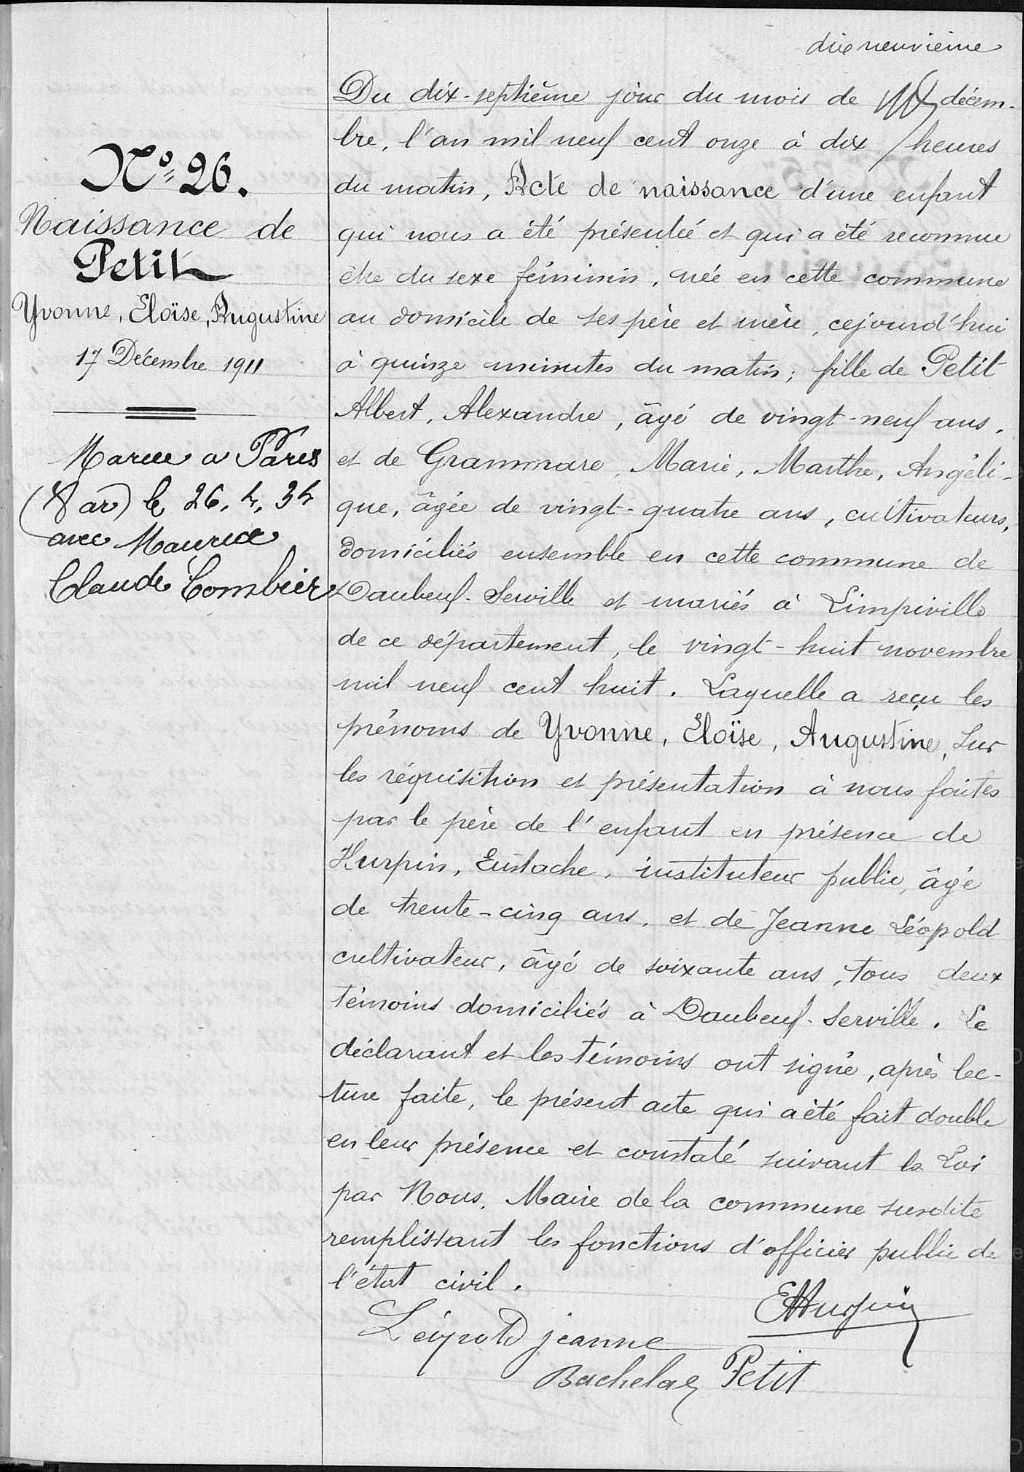 dix neuvième
N° 26.
Naissance de
Petit
Yvonne, Eloïse, Augustine
17 Décembre 1911
Mariée a Paris
(8 ar) le 26. 4. 34
avec Maurice
Claude Combier
Du dix-septième jour du mois de décem-
bre, l'an mil neuf cent onze à dix heures
du matin, Acte de naissance d'une enfant
qui nous a été présentée et qui a été reconnue
être du sexe féminin, née en cette commune
au domicile de ses père et mère, cejourd'hui
à quinze minutes du matin; fille de Petit
Albert, Alexandre, âgé de vingt-neuf ans,
et de Grammare, Marie, Marthe, Angéli-
que, âgée de vingt-quatre ans, cultivateurs,
domiciliés ensemble en cette commune de
Daubeuf-Serville et mariés à Limpiville
de ce département, le vingt-huit novembre
mil neuf cent huit. Laquelle a reçu les
prénoms de Yvonne, Eloïse, Augustine, Sur
les réquisition et présentation à nous faites
par le père de l'enfant en présence de
Hurpin, Eustache, instituteur public, âgé
de trente-cinq ans, et de Jeanne Léopold
cultivateur, âgé de soixante ans, tous deux
témoins domiciliés à Daubeuf-Serville. Le
déclarant et les témoins ont signé, après lec-
ture faite, le présent acte qui a été fait double
en leur présence et constaté suivant la Loi
par Nous, Maire de la commune susdite
remplissant les fonctions d'officier public de
l'état civil.
EHurpin
Léopold jeanne
Bachelay Petit